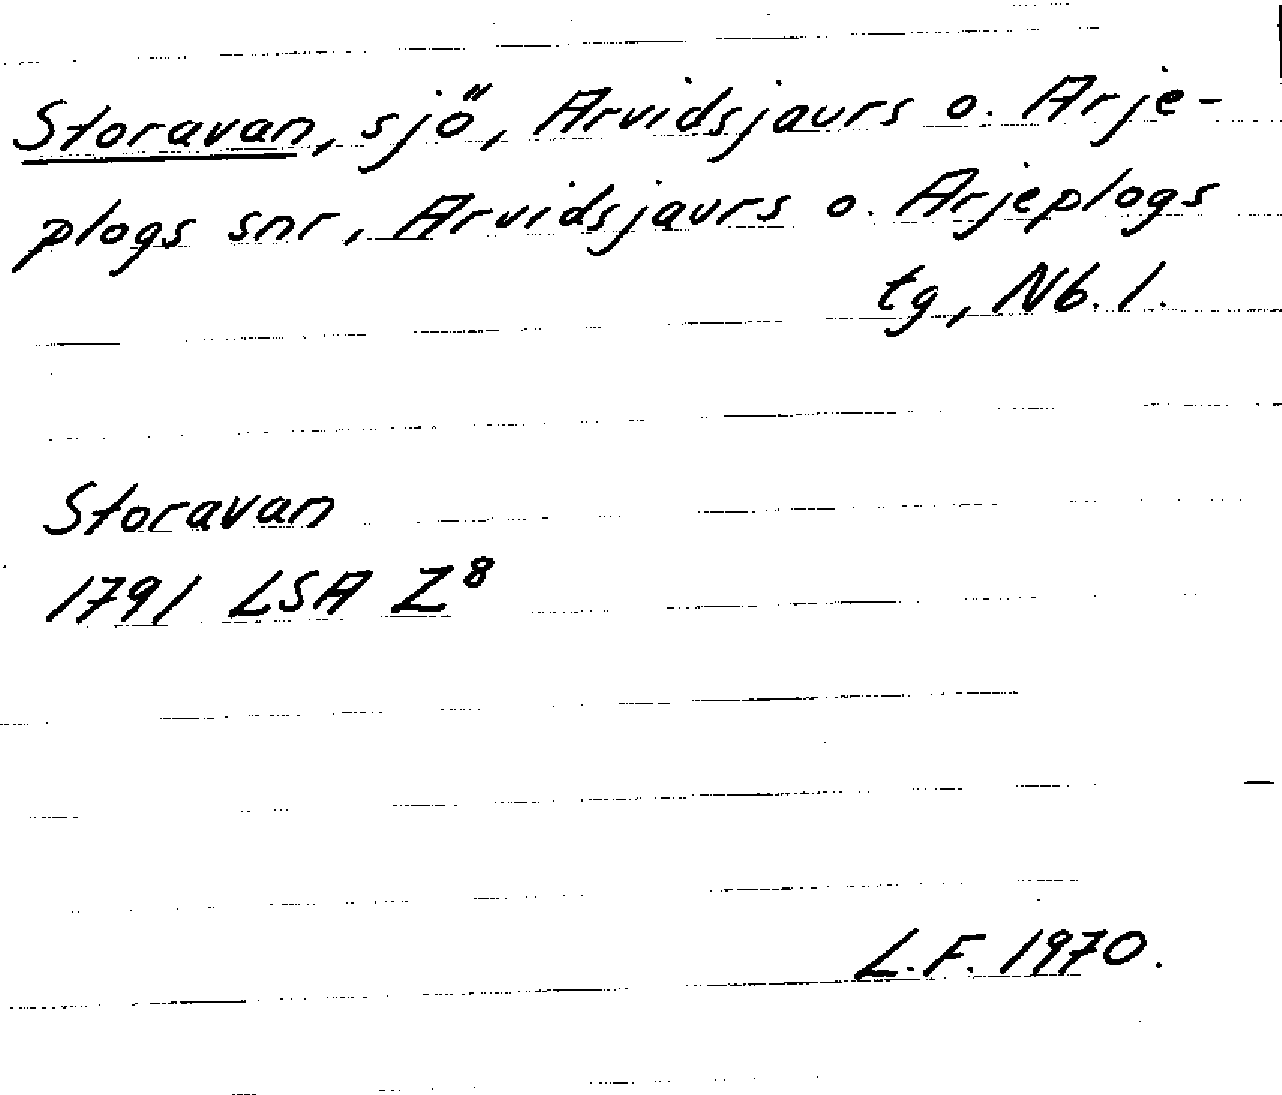 Storavan, sjö, Arvidsjaurs o. Arje-
plogs snr, Arvidsjaurs o. Arjeplogs
tg, Nb. l.
Storavan
1791 LSA Z⁸
L.F. 1970.